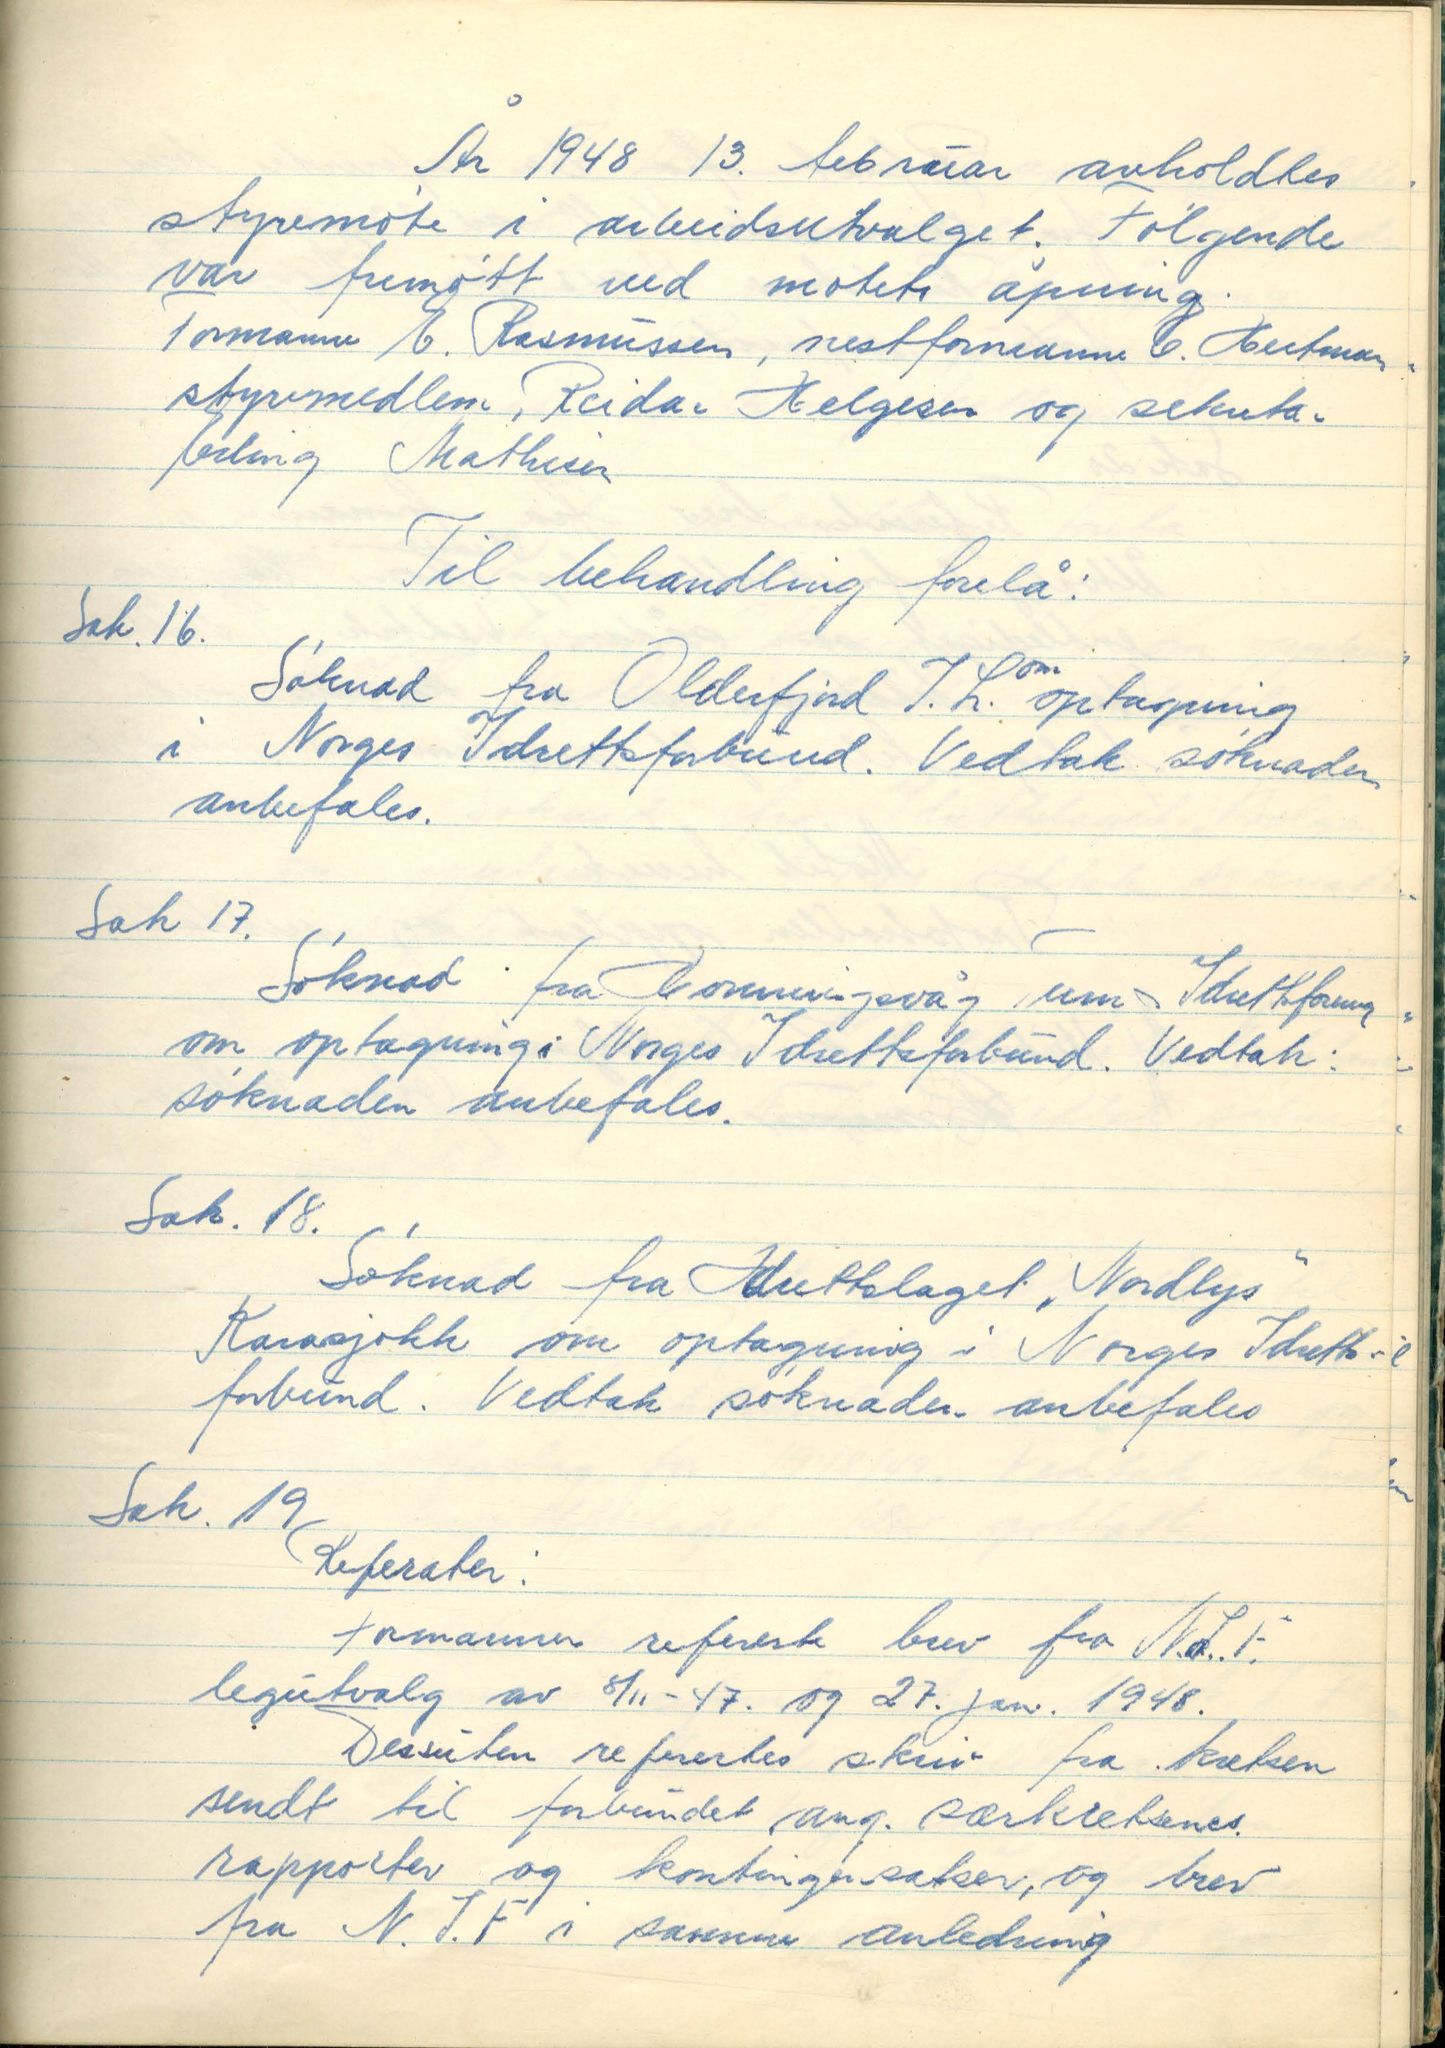 År 1948 13. februar avholdtes
styremöte i arbeidsutvalget. Fölgende
var fremött ved motets åpning.
Formann E. Rasmussen, nestformann
styremedlem, Reidar Helgesen og sekretær
Erling Mathisen
Til behandling forelå:
Sak. 16.
Söknad fra Olderfjord I.L. om optagning
i Norges Idrettsforbund. Vedtak söknaden
anbefales.
Sak 17.
Söknad fra Honningsvåg Turn & Idrettsforening
om optagning i Norges Idrettsforbund. Vedtak:
söknaden anbefales.
Sak. 18.
Söknad fra Idrettslaget „Nordlys“
Karasjokk om optagning i Norges Idretts-
forbund. Vedtak söknaden anbefales
Sak. 19
Referater:
Formannen refererte brev fra N.I.F.
legutvalg av 8/11-47. og 27. jan. 1948.
Dessuten referertes skriv fra kretsen
sendt til forbundet ang. særkretsenes
rapporter og kontingensatser, og brev
fra N.I.F i samme anledning